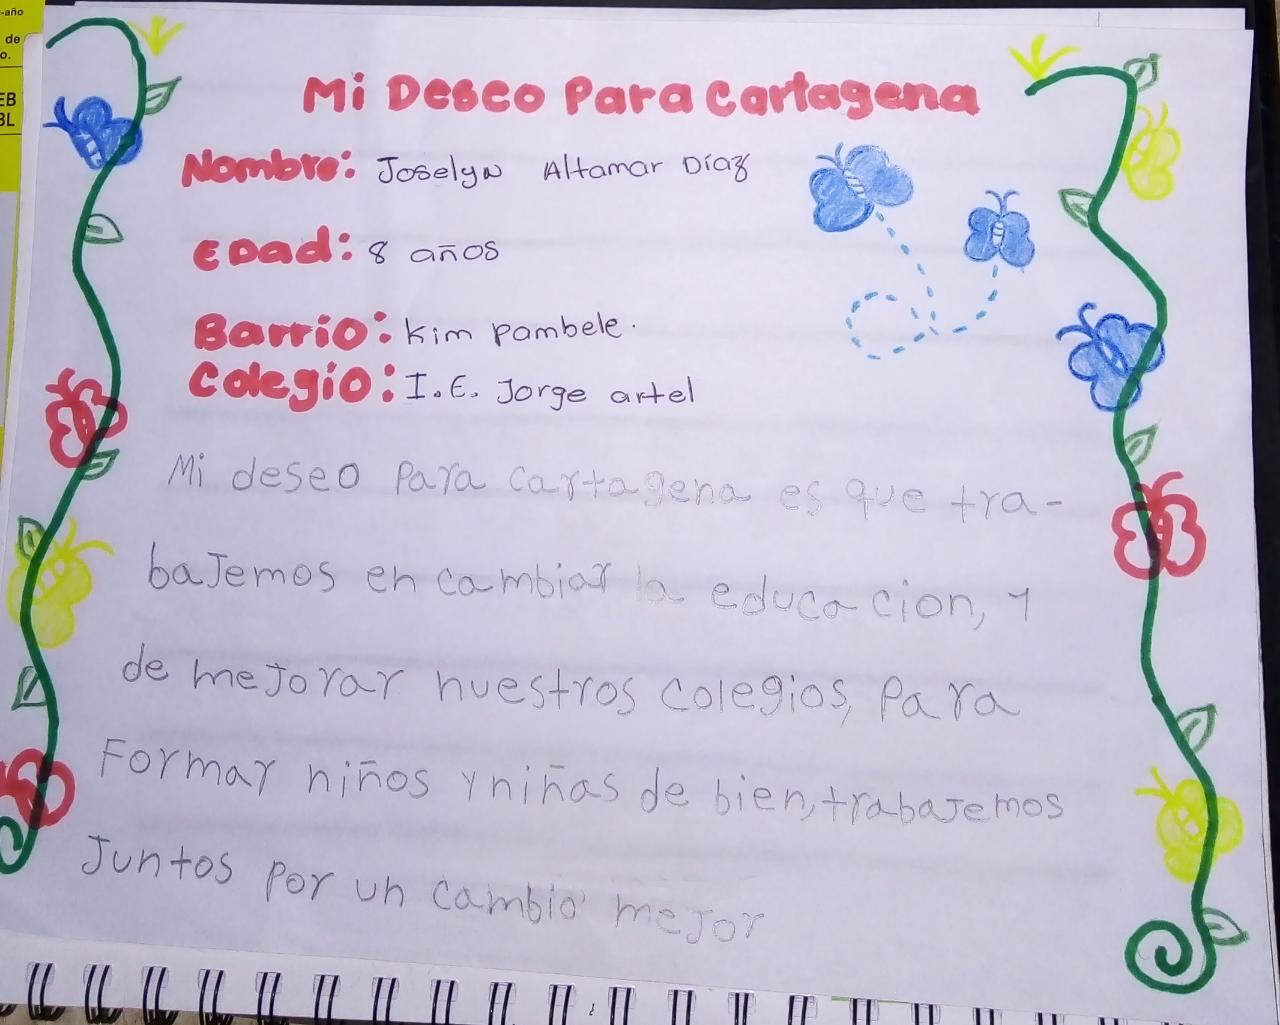 -año
de
o.
EB
BL
Mi Deseo Para Cartagena
Nombre: Joselyn Altamar Díaz
Edad: 8 años
Barrio: Kim pambele.
Colegio: I.E. Jorge artel
Mi deseo para cartagena es que tra-
bajemos en cambiar la educacion, y
de mejorar nuestros colegios, para
Formar niños y niñas de bien, trabajemos
Juntos por un cambio mejor